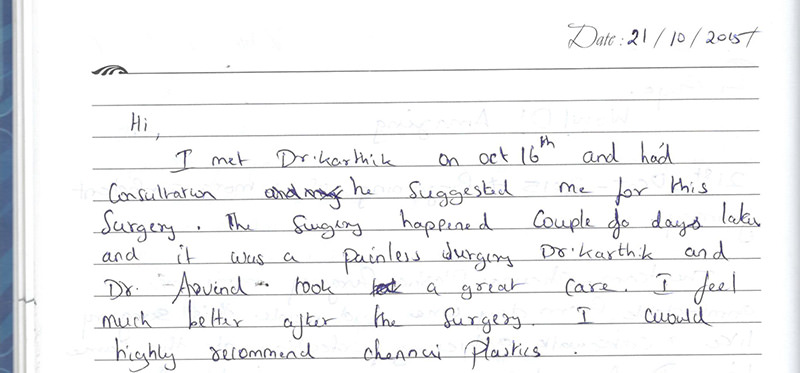 Date: 21/10/2015
Hi,
I met Dr.Karthik on oct 16th and had
Consultation he suggested me for this
Surgery. The Surgery happened Couple fo days later
and it was a painless surgery Dr.Karthik and
Dr. Aravind took a great care. I feel
much better after the surgery. I would
highly recommend chennai plastics.